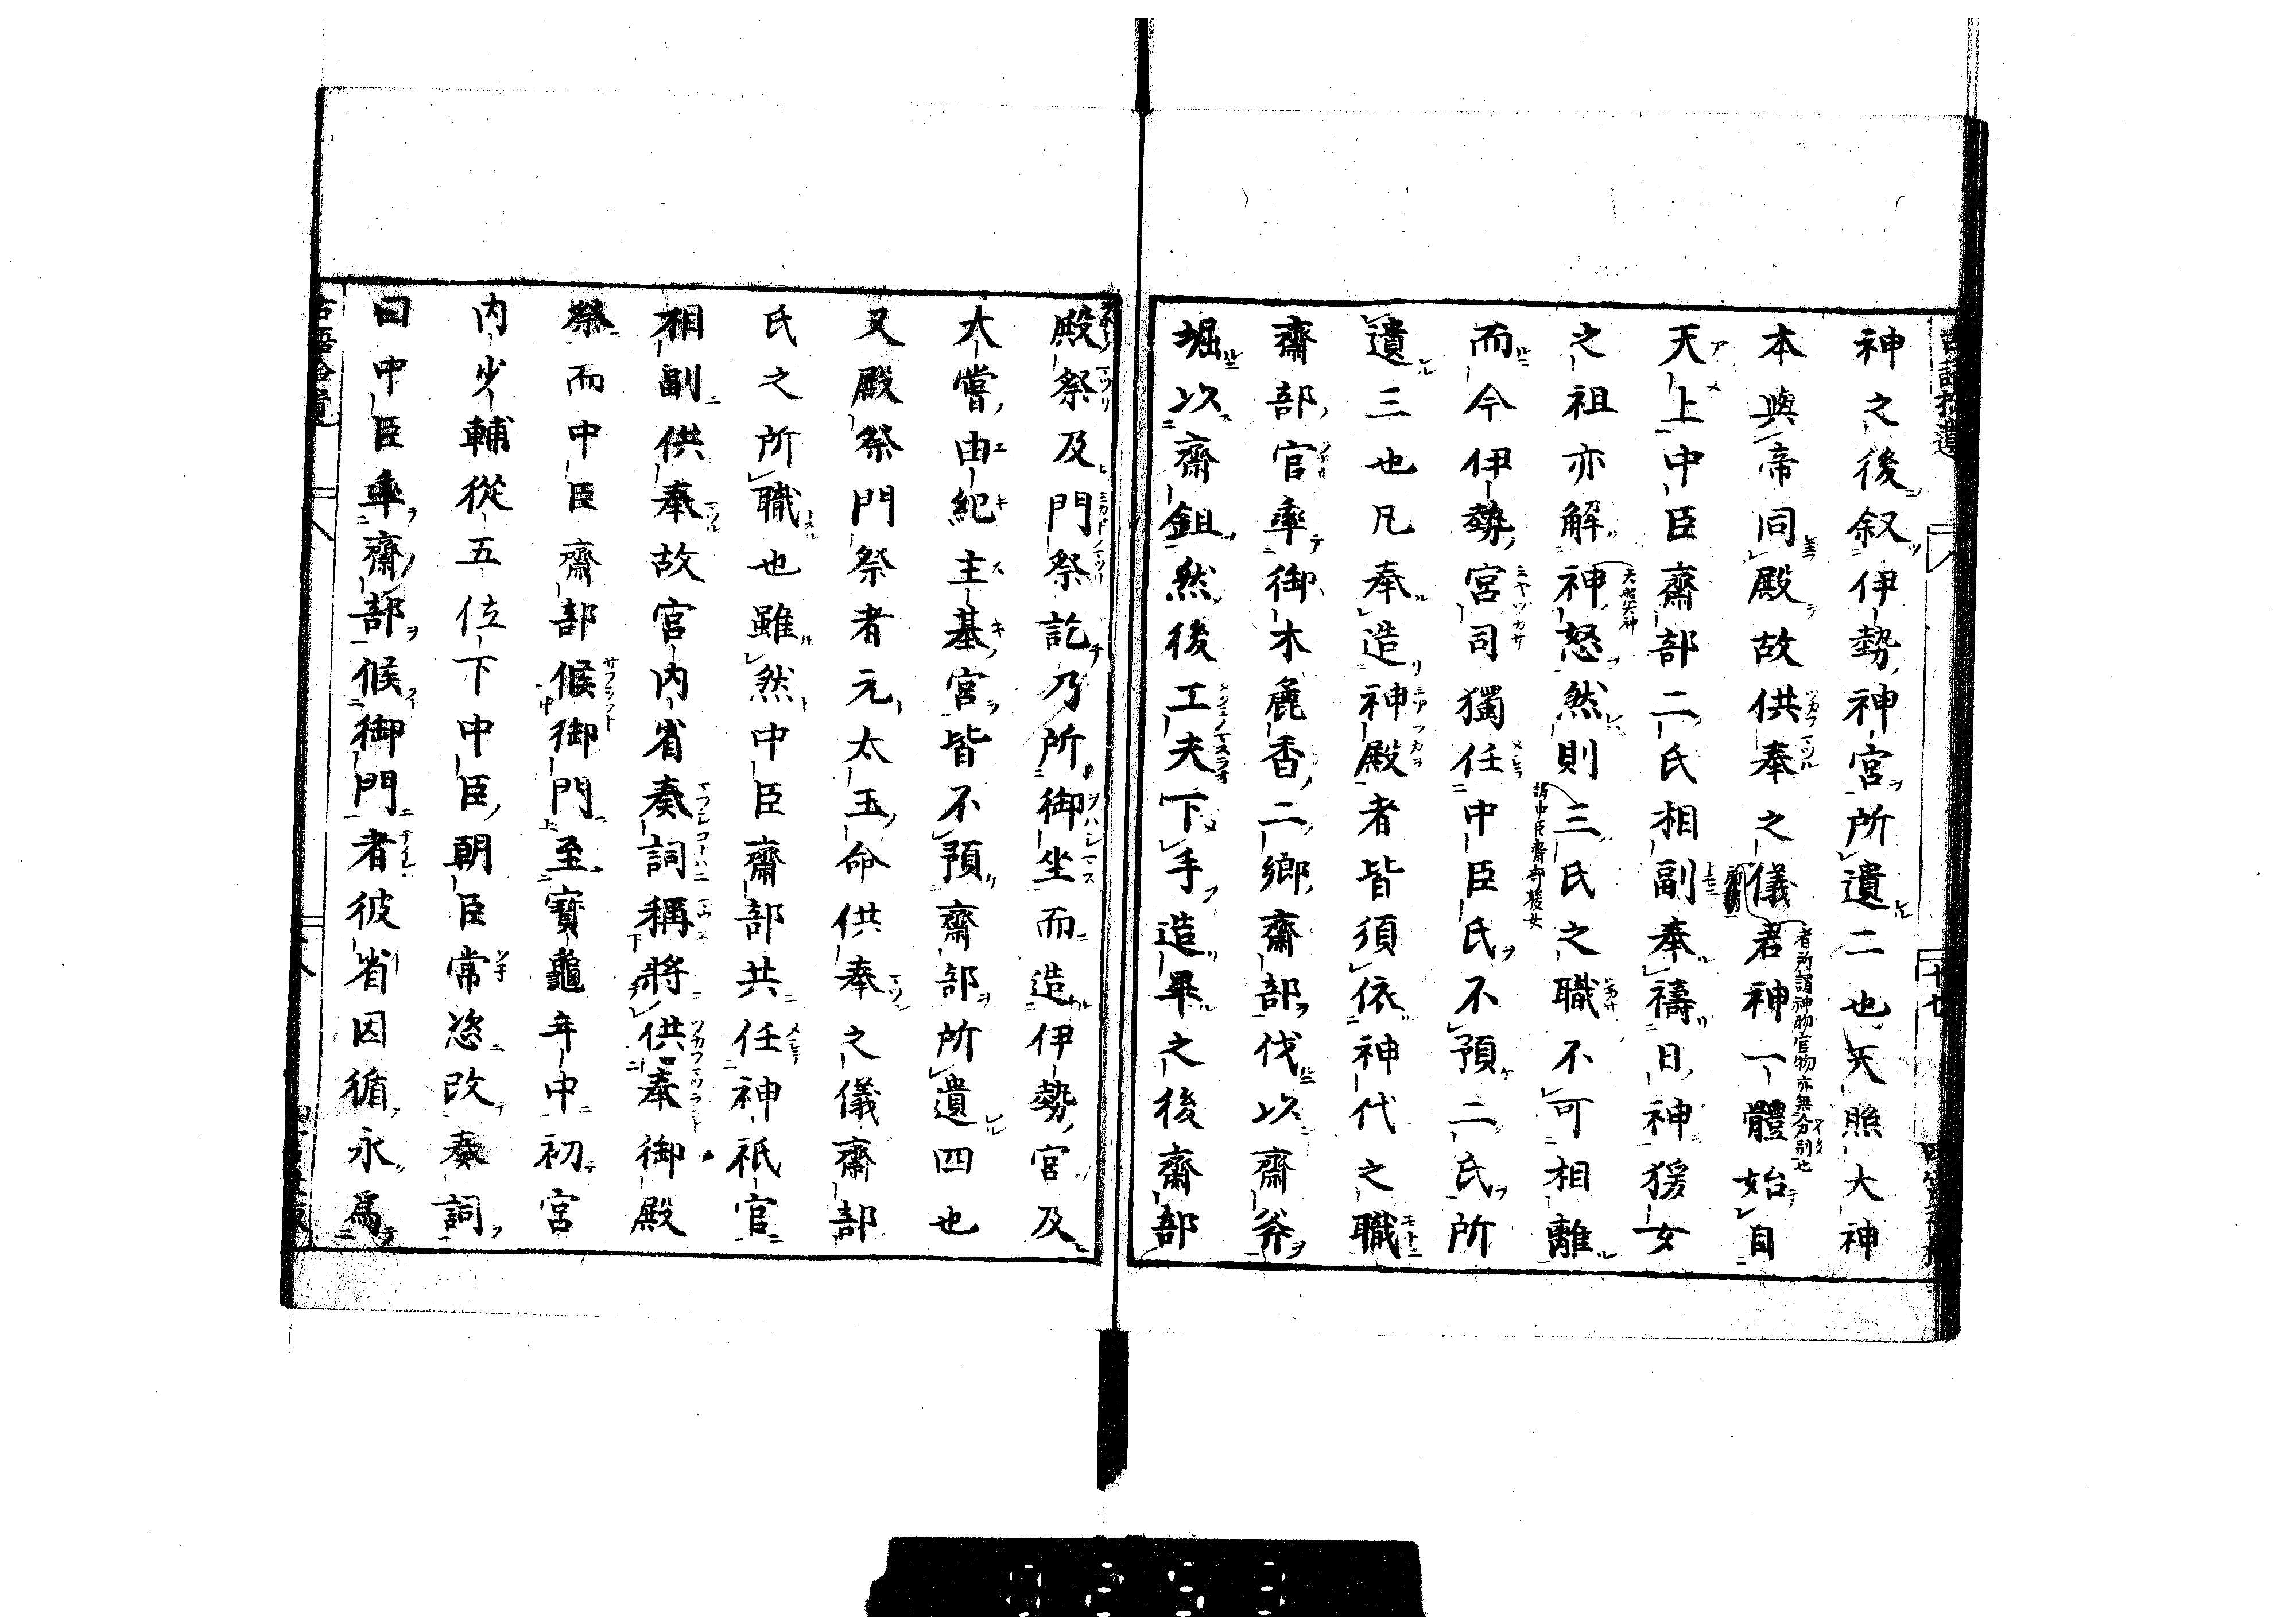 神之後叙伊勢神宮所遺二也天照大神
本與帝同殿故供奉之儀君神一體始自
者所謂神物官物亦無分別也
天上中臣齋部二氏相副奉禱日神猨女
之祖亦解神怒然則三氏之職不可相離
天照大神
謂中臣齋部猨女
而今伊勢宮司獨任中臣氏不預二氏所
遺三也凡奉造神殿者皆須依神代之職
齋部官率御木麁香二鄉齋部伐以齋斧
堀以齋鉏然後工夫下手造畢之後齋部
殿祭及門祭訖乃所御坐而造伊勢宮及
大嘗由紀主基宮皆不預齋部所遺四也
又殿祭門祭者元太玉命供奉之儀齋部
氏之所職也雖然中臣齋部共任神祇官
相副供奉故宮内省奏詞稱將供奉御殿
祭而中臣齋部候御門至寶龜年中初宮
内少輔從五位下中臣朝臣常恣改奏詞
曰中臣率齋部候御門者彼省因循永爲